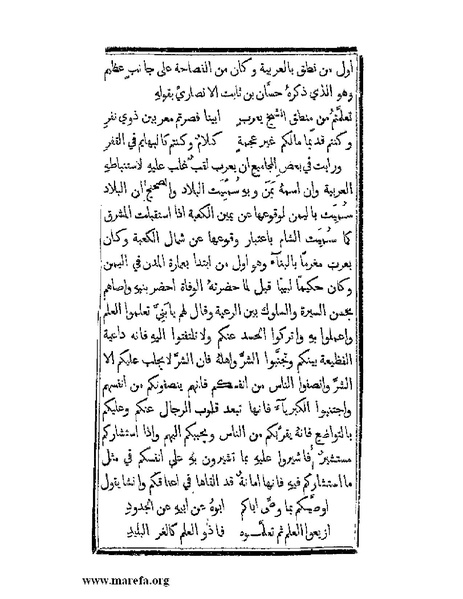 اول من نطق بالعربية وكان من الفصاحة على جانب عظيم
وهو الذي ذكرهُ حسَّان بن ثابت الانصاريُّ بقولهِ
تعلَّمتُم من منطق الشيخ يعربٍ ابينا فصرتم معربين ذوي نفرِ
وكنتم قديمًا مالكم غير عجمةٍ كلامٌ وكنتم كالبهايم في القفرِ
ورايت في بعض المجاميع ان يعرب لقبٌ غلب عليهِ لاستنباطهِ
العربية وان اسمهُ يَمَن وبهِ سُمِّيَت البلاد والصحيح ان البلاد
سُمِّيَت باليمن لوقوعها عن يمين الكعبة اذا استقبلت المشرق
كما سُمِّيَت الشام باعتبار وقوعها عن شمال الكعبة وكان
يعرب مغرمًا بالبنآء وهو اول من ابتدا بعمارة المدن في اليمن
وكان حكيمًا لبيبًا قيل لما حضرتهُ الوفاة احضر بنيهِ واوصاهم
بحسن السيرة والسلوك بين الرعية وقال لهم يا بَنيَّ تعلموا العلم
واعملوا بهِ واتركوا الحسد عنكم ولا تلتفتوا اليهِ فانه داعية
القطيعة بينكم وتجنبوا الشرَّ واهلهُ فان الشرَّ لا يجلب عليكم الا
الشرَّ وانصفوا الناس من انفسكم فانهم ينصفونكم من انفسهم
واجتنبوا الكبريآء فانها تبعد قلوب الرجال عنكم وعليكم
بالتواضع فانهُ يقرّبكم من الناس ويحببكم اليهم واذا استشاركم
مستشيرٌ فاشيروا عليهِ بما تشيرون بهِ على انفسكم في مثل
ما استشاركم فيهِ فانها امانةٌ قد القاها في اعناقكم وانشا يقول
اوصيكم بما وصَّى اباكم ابوهُ عن ابيهِ عن الجدودِ
اذيعوا العلم ثم تعلَّموه فما ذو العلم كالغر البليدِ
www.marefa.org